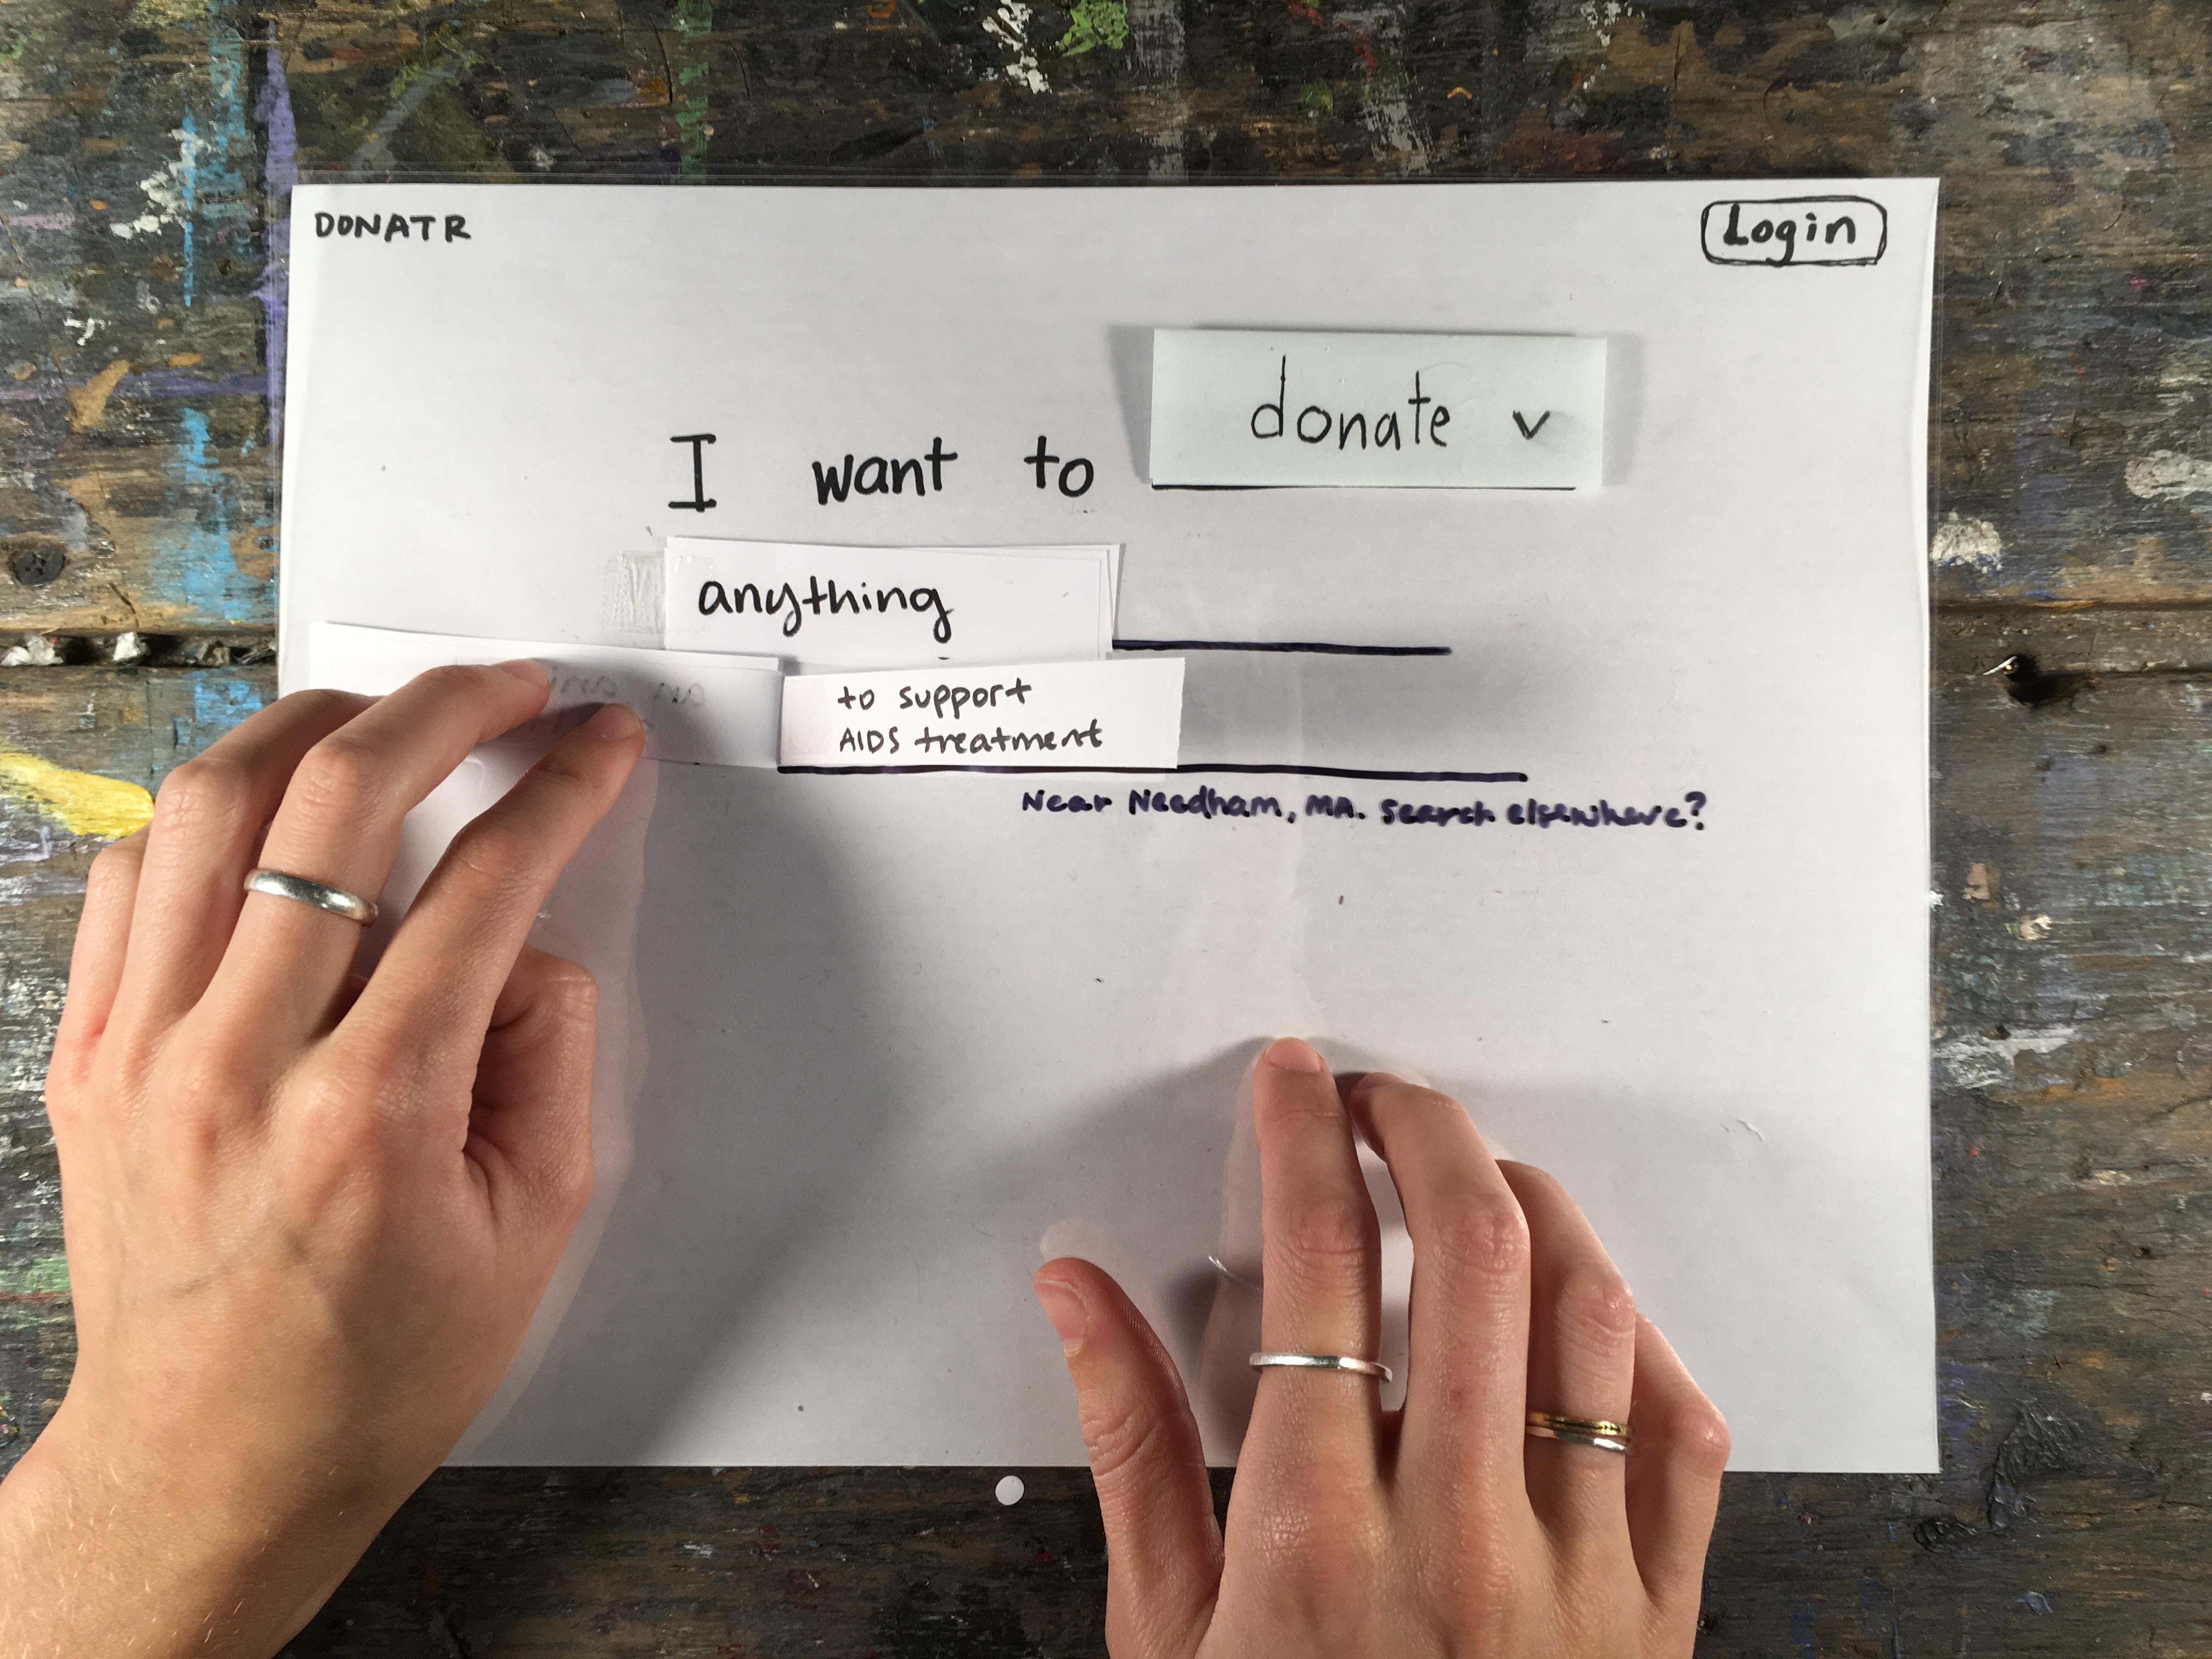 DONATR
Login
I want to donate v
anything
to support
AIDS treatment
Near Needham, MA. Search elsewhere?